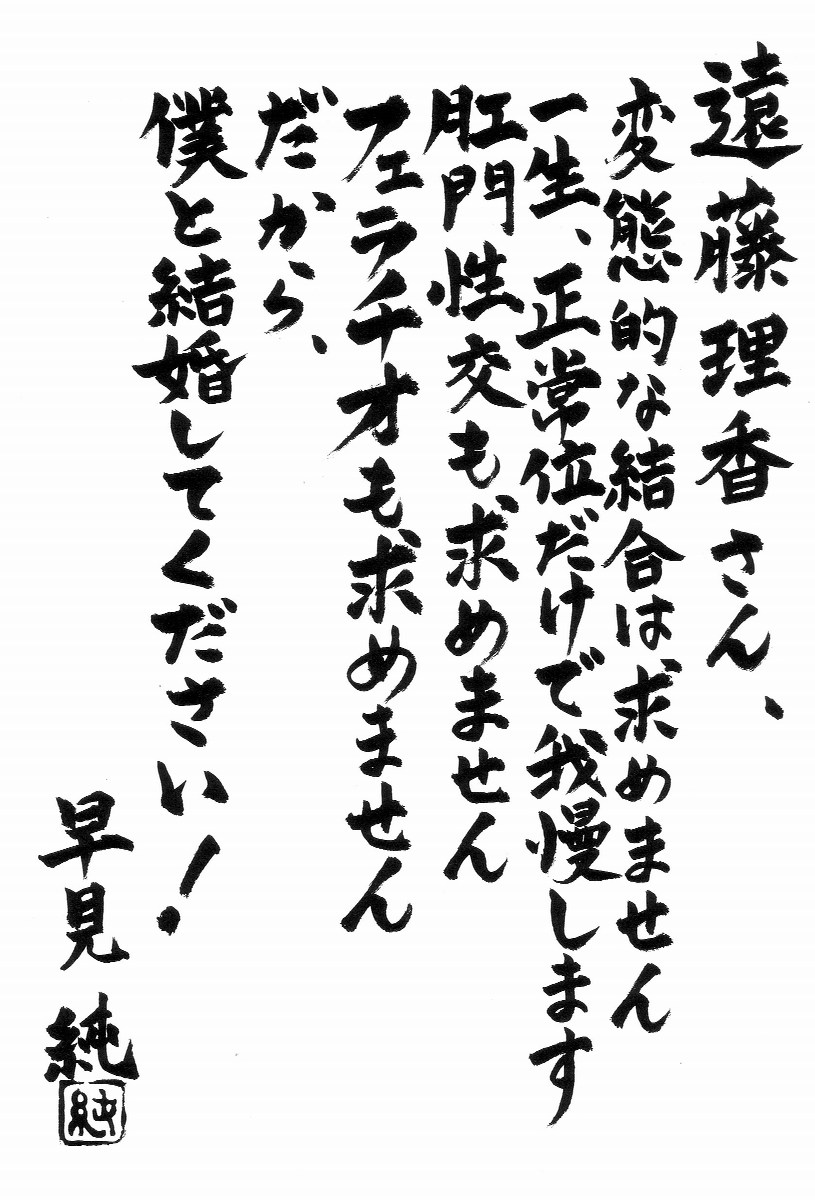 遠藤理香さん、
変態的な結合は求めません
一生、正常位だけで我慢します
肛門性交も求めません
フェラチオも求めません
だから、
僕と結婚してください！
早見 純
純